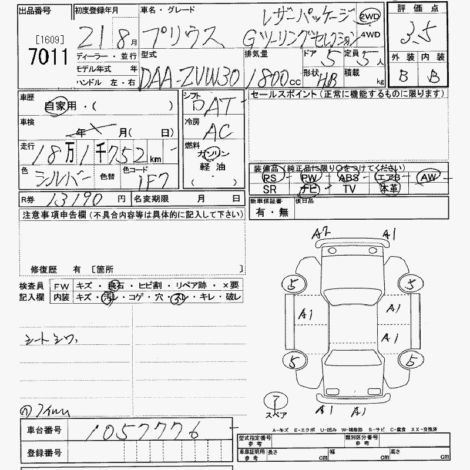 出品番号 初度登録年月 車名・グレード レザーパッケージ 2WD 4WD 評価点
[1609] 7011 21年8月 プリウス Gツーリングセレクション 3.5
ディーラー・並行 型式 排気量 ドア 定員 外装 内装
モデル年式 年 DAA-ZVW30 1800cc 5 5人
ハンドル 左・右 形状 HB 積載 kg B B
車歴 シフト セールスポイント(正常に機能するものに限ります)
自家用・( ) DAT
車検 冷房
年 月( 日) AC
走行 燃料
18万1千752km ガソリン
色 色替 色コード 軽油
シルバー 1F7 ( )
装備品 純正品に限り○をつけてください
PS PW ABS エアB AW
SR ナビ TV 本革
R券 13190円 名変期限 月 日
新車保証書 後日品
有・無
注意事項申告欄(不具合内容等は具体的に記入して下さい)
A2 A1
5 5
A1 A1 A1
修復歴 有[箇所 ]
検査員記入欄 FW キズ・飛石・ヒビ割・リペア跡・×要
内装 キズ・汚レ・コゲ・穴・スレ・キレ・破レ
5 5
シートシワ.
A1 A1
スペア
A-キズ E-エクボ U-凹み W-補修跡 S-サビ C-腐食 XX-交換済
車台番号 1057776
登録番号
型式指定番号 参考 類別区分番号 参考
車庫証明用 参考 長 cm 幅 cm 高 cm